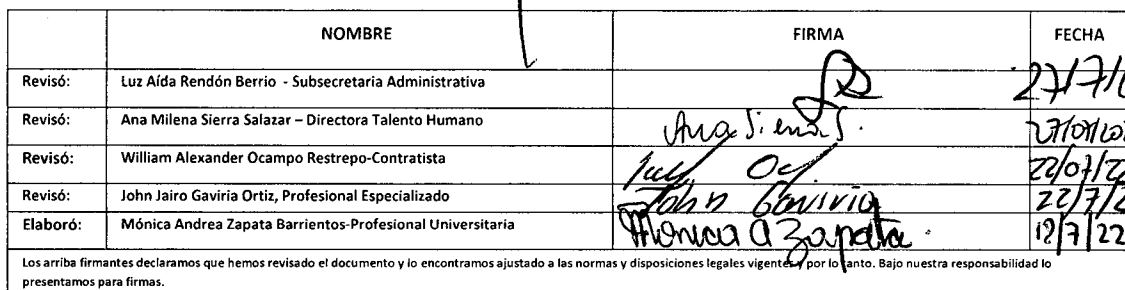 NOMBRE FIRMA FECHA
Revisó: Luz Aída Rendón Berrio - Subsecretaria Administrativa 27/7/
Revisó: Ana Milena Sierra Salazar – Directora Talento Humano Ana Sierra S.
Revisó: William Alexander Ocampo Restrepo-Contratista 22/07/2
Revisó: John Jairo Gaviria Ortiz, Profesional Especializado John Gaviria 22/7/2
Elaboró: Mónica Andrea Zapata Barrientos-Profesional Universitaria Mónica A Zapata 18/7/22
Los arriba firmantes declaramos que hemos revisado el documento y lo encontramos ajustado a las normas y disposiciones legales vigentes y por lo tanto. Bajo nuestra responsabilidad lo
presentamos para firmas.